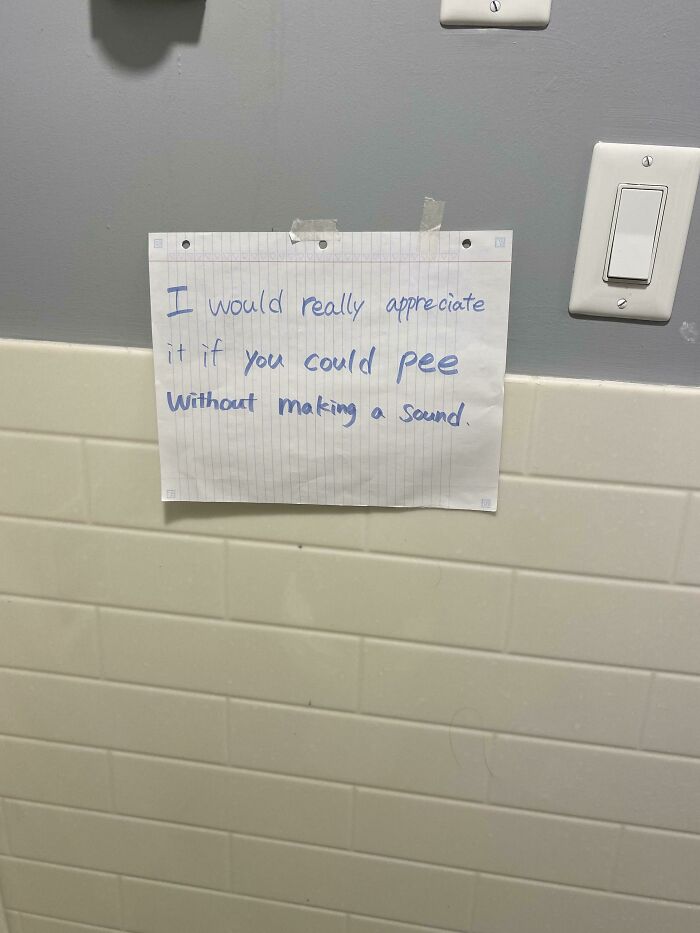 I would really appreciate
it if you could pee
without making a sound.